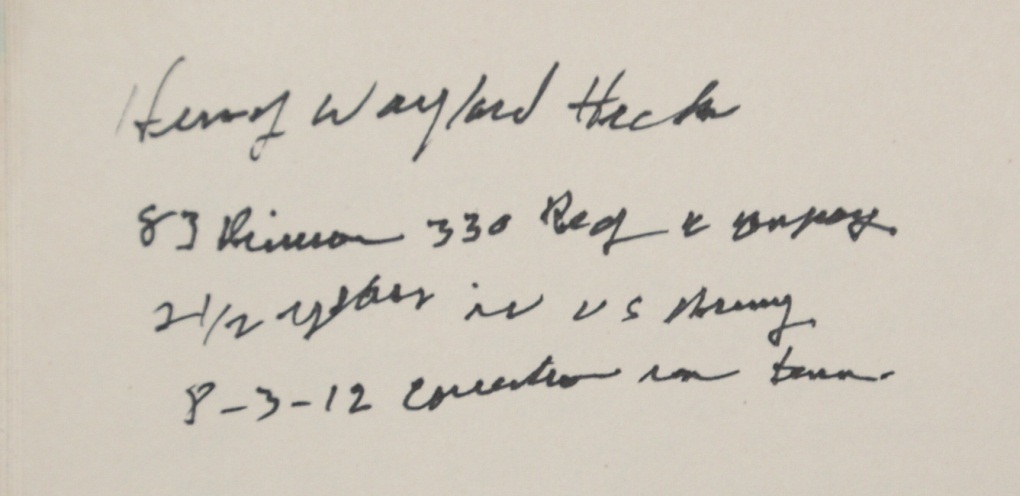 Henry Waylord Heck
83 Division 330 Reg E company
2 1/2 years in US Army
8-3-12 in Tenn.